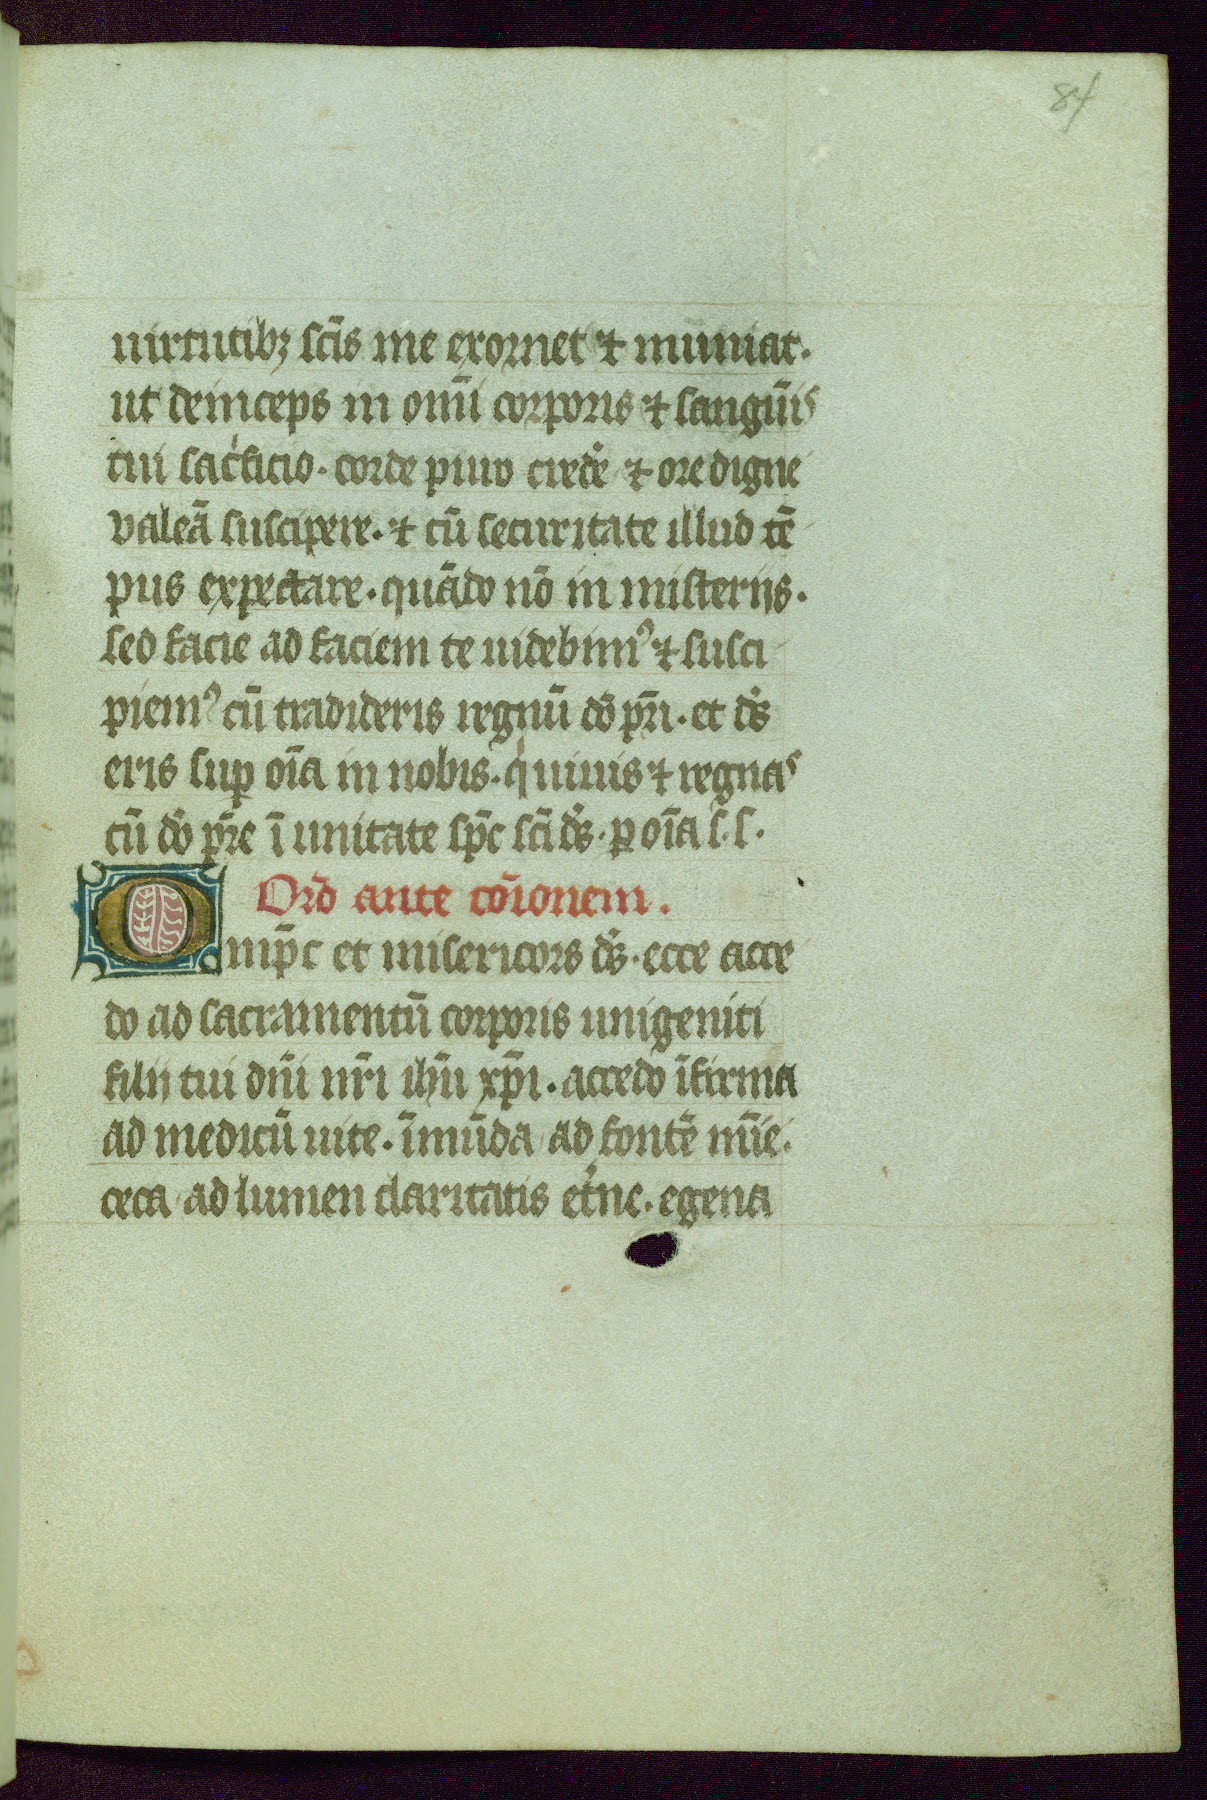 84
uirtutibꝫ sc̄is me exornet ⁊ muniat·
ut deinceps in om̄i corporis ⁊ sangūis
tui sac̍ficio· corde puro crede᷒ ⁊ ore digne
valeā suscipere· ⁊ cū securitate illud tē
pus expectare· quādo nō in misterijs·
sed facie ad faciem te uidebimꝰ ⁊ susci
piemꝰ cū tradideris regnū dō pr̄i· et ds̄
eris suꝑ oīa in nobis· qͥ uiuis ⁊ regnas
cū dō pr̄e ī unitate sp̄c sc̄i ds̄· ꝑ oīa s̄· s·
Or̄o ante cōionem.
Omp̄c et misericors ds̄· ecce acce
do ad sacramentū corporis unigeniti
filij tui dn̄i nr̄i ih̄u xp̄i· accedo īfirma
ad medicū uite· īmūda ad fontē mīe·
ceca ad lumen claritatis et̍ne· egena